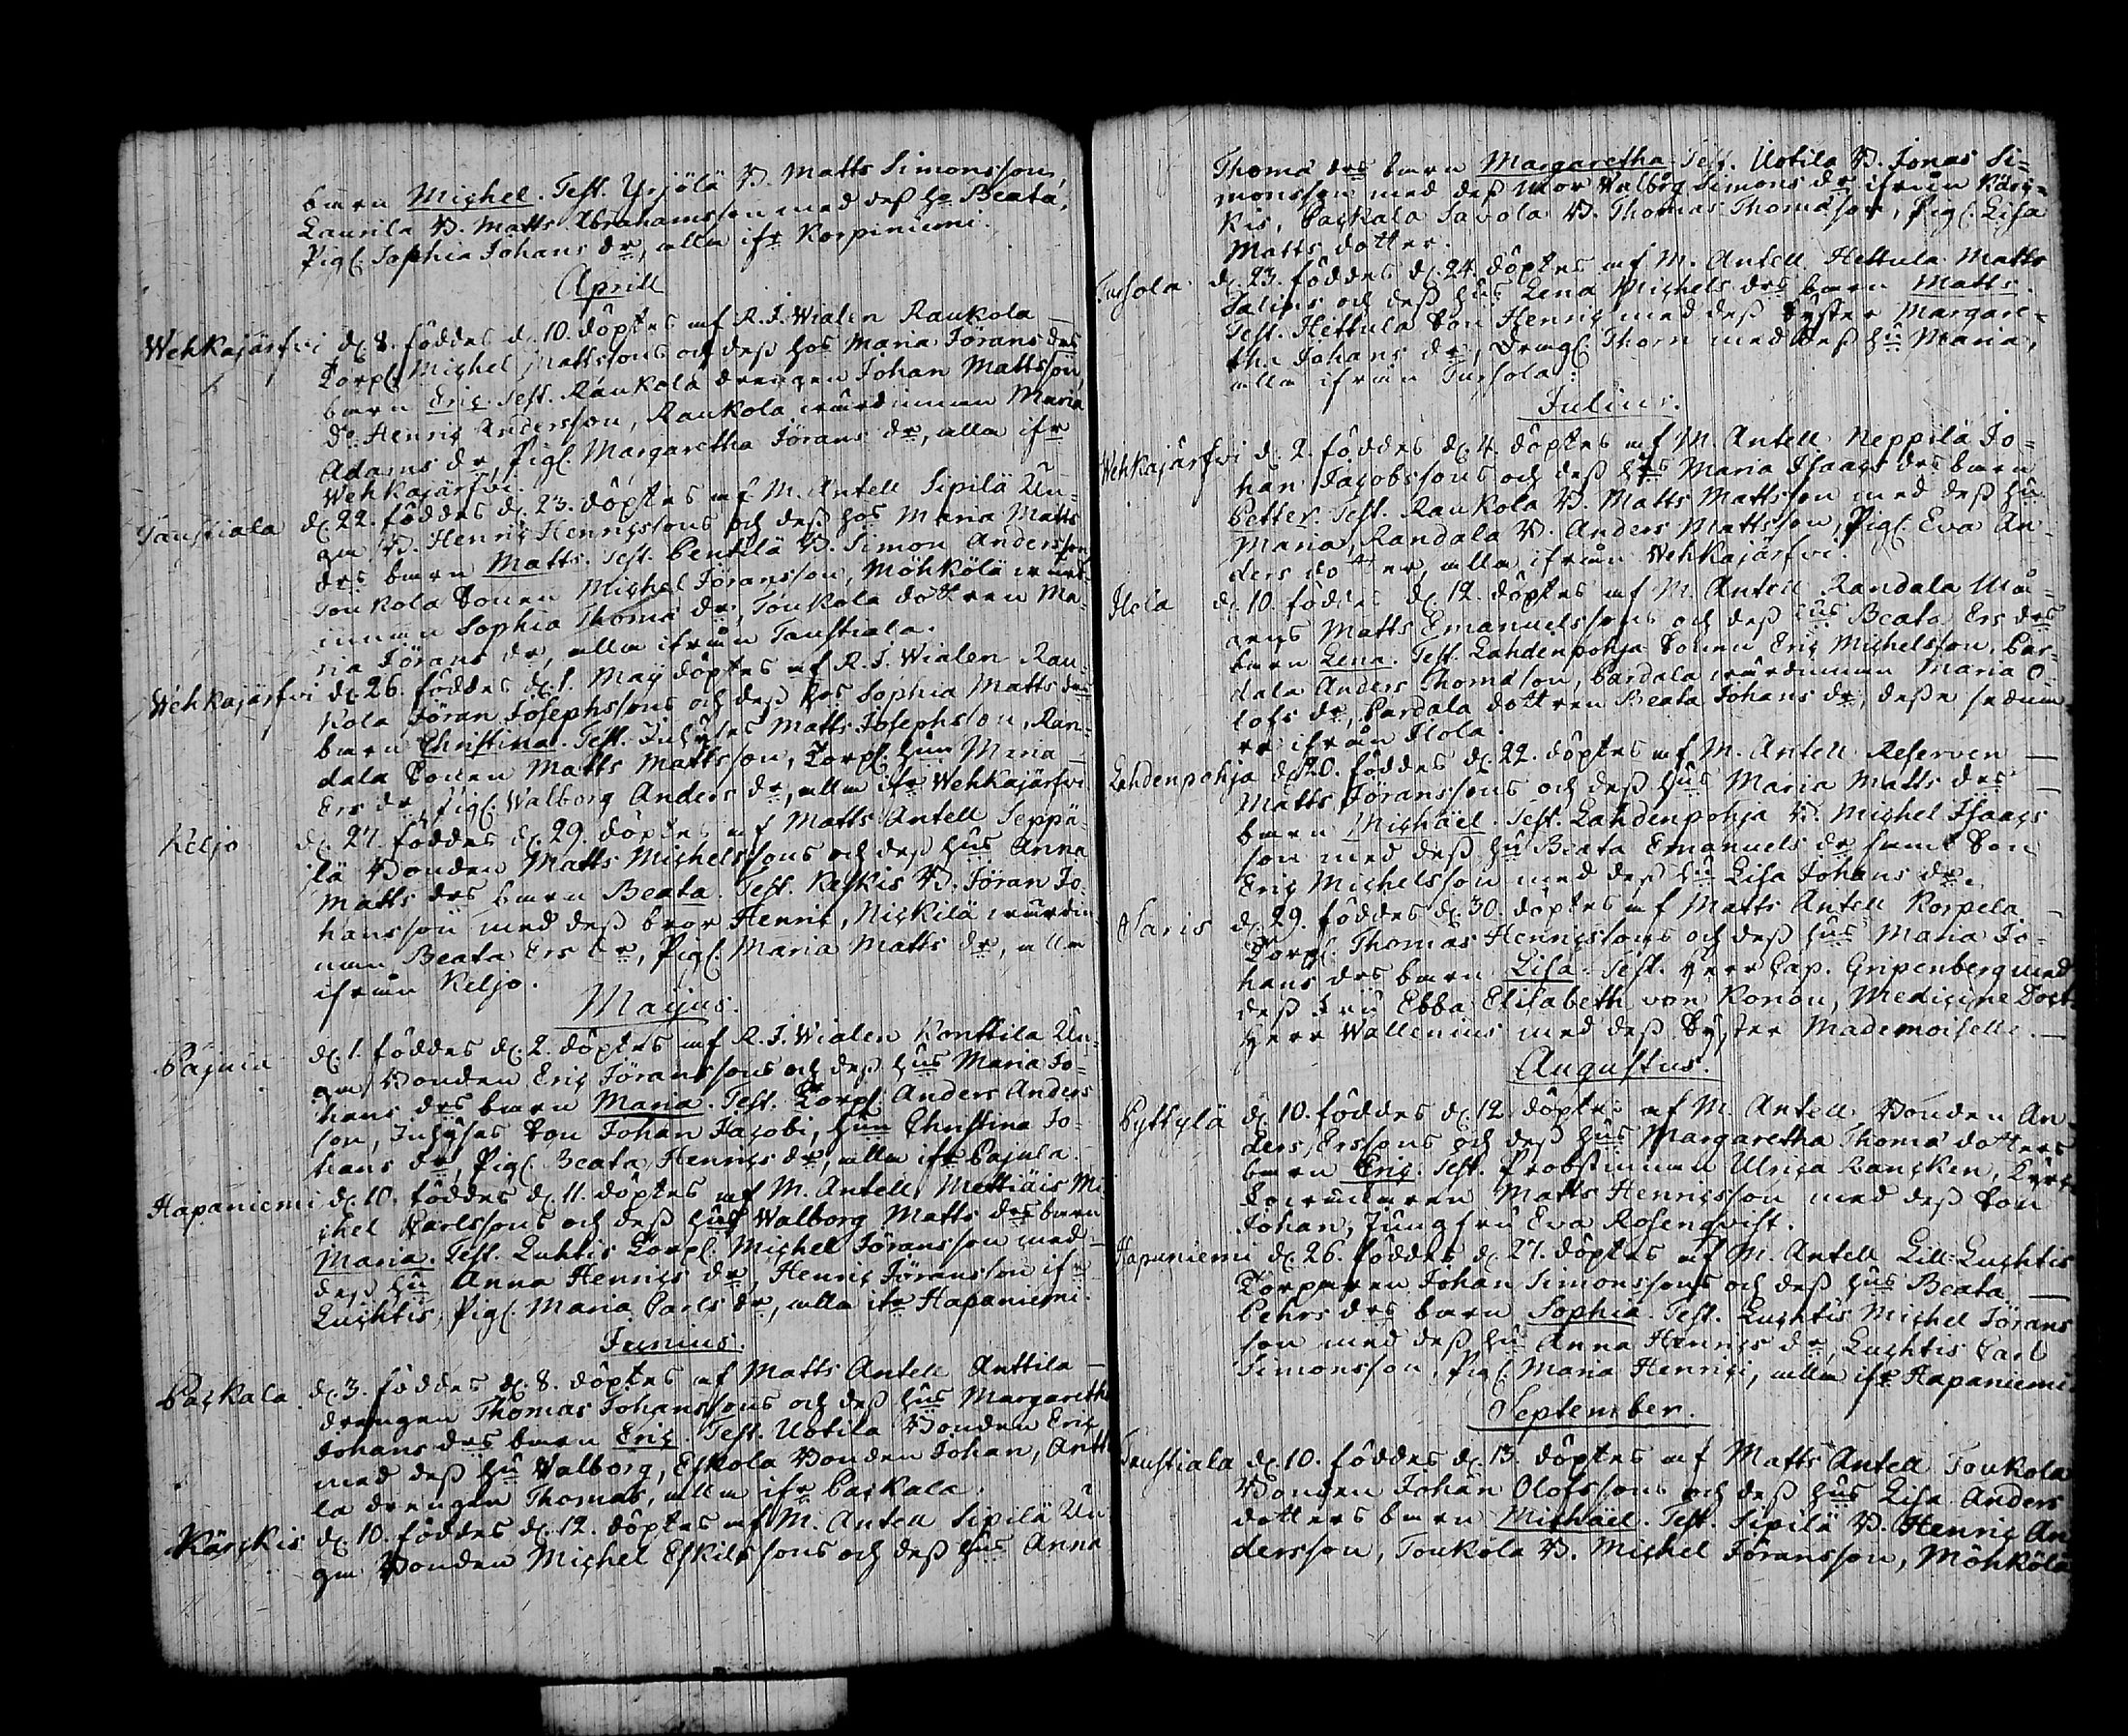 barn Michel. Test. Yrjölä B. Matts Simonsson,
Laurila B. Matts Abrahamsson med dess ho Beata,
Pig. Sophia Johans dr, alla ifr Korpiniemi.
Aprill
Wehkajärfvi d. 8. föddes d. 10. döptes af R. J. Wialen Raukola
Torp. Michel Mattssons och dess hos Maria Jörans drs
barn Eric. Test. Raukola drengen Johan Mattsson,
do Henric Andersson, Raukola wärdinnan Maria
Adams dr, Pig. Margaretha Jörans dr, alla ifr
Wehkajärfvi.
Taustiala d. 22. föddes d. 23. döptes af M. Antell Sipilä Un-
ga B. Henric Henricssons och dess hos Maria Matts
drs barn Matts. Test. Pentilä B. Simon Andersson
Toukola Sonen Michel Jöransson, Möhkölä wärd-
innan Sophia Thoma dr, Toukola dottren Ma-
ria Jörans dr, alla ifrån Taustiala.
Wehkajärfvi d. 26. föddes d. 1. May döptes af R. J. Wialen Rau-
kola Jöran Josephssons och dess hos Sophia Matts drs
barn Christina. Test. Inhyses Matts Josephsson, Ran-
dala Sonen Matts Mattsson, Torp. hun Maria
Ers dr, Pig. Walborg Anders dr, alla ifr Wehkajärfvi
Keljo d. 27. föddes d. 29. döptes af Matts Antell Seppä-
lä Bonden Matts Michelssons och dess hus Anna
Matts drs barn Beata. Test. Kaskis B. Jöran Jo-
hansson med dess bror Henric, Nickilä wärdin-
nan Beata Ers dr, Pig. Maria Matts dr, alla
ifrån Keljo.
Majus.
Pajula d. 1. föddes d. 2. döptes af R. J. Wialen Konttila Un-
ga Bonden Eric Jöranssons och dess hus Maria Jo-
hans drs barn Maria. Test. Torp. Anders Anders
son, Inhyses Son Johan Jacobi, hun Christina Jo-
hans dr, Pig. Beata Henrics dr, alla ifr Pajula.
Hapaniemi d. 10. föddes d. 11. döptes af M. Antell Mettiäis Mi
chel Carlssons och dess hus Walborg Matts drs barn
Maria. Test. Luhtis Torp. Michel Jöransson med
dess hu Anna Henrics dr, Henric Jöransson ifr
Luchtis, Pig. Maria Carls dr, alla ifr Hapaniemi.
Junius.
Packala d. 3. föddes d. 8. döptes af Matts Antell Anttila
drengen Thomas Johanssons och dess hus Margaretha
Johans drs barn Eric. Test. Uotila Bonden Eric
med dess hu Walborg, Eskola Bonden Johan, Antti
la drengen Thomas, alla ifr Packala.
Kärckis d. 10. föddes d. 12. döptes af M. Antell Sipilä Un
ga Bonden Michel Eskilssons och dess hus Anna
Thoma drs barn Margaretha. Test. Uotila B. Jonas Si-
monsson med dess mor Walborg Simons dr ifrån Kärc-
kis, Packala Savola B. Thomas Thomasson, Pig. Lisa
Matts dotter.
Tursola d. 23. föddes d. 24. döptes af M. Antell Hettula Matts
Salins och dess hus Lena Michels drs barn Matts.
Test. Hettula Son Henric med dess Syster Margare-
tha Johans dr, Drag. Thorn med dess hu Maria,
alla ifrån Tursola.
Julius.
Wehkajärfvi d. 2. föddes d. 4. döptes af M. Antell Neppilä Jo-
han Jacobssons och dess hus Maria Isaacs drs barn
Petter. Test. Raukola B. Matts Mattsson med dess hu
Maria, Randala B. Anders Mattsson, Pig. Eva An-
ders dotter, alla ifrån Wehkajärfvi.
Ilola d. 10. föddes d. 12. döptes af M. Antell Randala Må-
args Matts Emanuelssons och dess hus Beata Ers drs
barn Lena. Test. Lahdenpohja Sonen Eric Michelsson, Par-
dala Anders Thomason, Pardala wärdinnan Maria O-
lofs dr, Pardala dottren Beata Johans dr, desse sedna
re ifrån Ilola.
Lahdenpohja d. 20. föddes d. 22. döptes af M. Antell Reserven
Matts Jöranssons och dess hus Maria Matts drs
barn Michael. Test. Lahdenpohja B. Michel Isaacs
son med dess hu Beata Emanuels dr samt Son
Eric Michelsson med dess hu Lisa Johans dr.
Saris d. 29. föddes d. 30. döptes af Matts Antell Korpela
Torp. Thomas Henricssons och dess hus Maria Jo-
hans drs barn Lisa. Test. Herr Cap. Gripenberg med
dess Fru Ebba Elisabeth von Konou, Medicine Doct.
Herr Wallenius med dess Syster Mademoiselle.
Augustus.
Pyttylä d. 10. föddes d. 12. döptes af M. Antell Bonden An-
ders Erssons och dess hus Margaretha Thoma dotters
barn Eric. Test. Probstinnan Ulrica Rancken, Kyrc
Matts Henricsson med dess Son
Johan, Jungfru Eva Rosenqvist.
Hapaniemi d. 26. föddes d. 27. döptes af M. Antell Lill-Luchtis
Torparen Johan Simonssons och dess hus Beata
Pehrs drs barn Sophia. Test. Luchtis Michel Jörans
son med dess hu Anna Henrics dr, Luchtis Carl
Simonsson, Pig. Maria Henrici, alla ifr Hapaniemi.
September.
Taustiala d. 10. föddes d. 13. döptes af Matts Antell Toukola
Bonden Johan Olofssons och dess hus Lisa Anders
dotters barn Michaël. Test. Sipilä B. Henric An
dersson, Toukola B. Michel Jöransson, Möhkölä